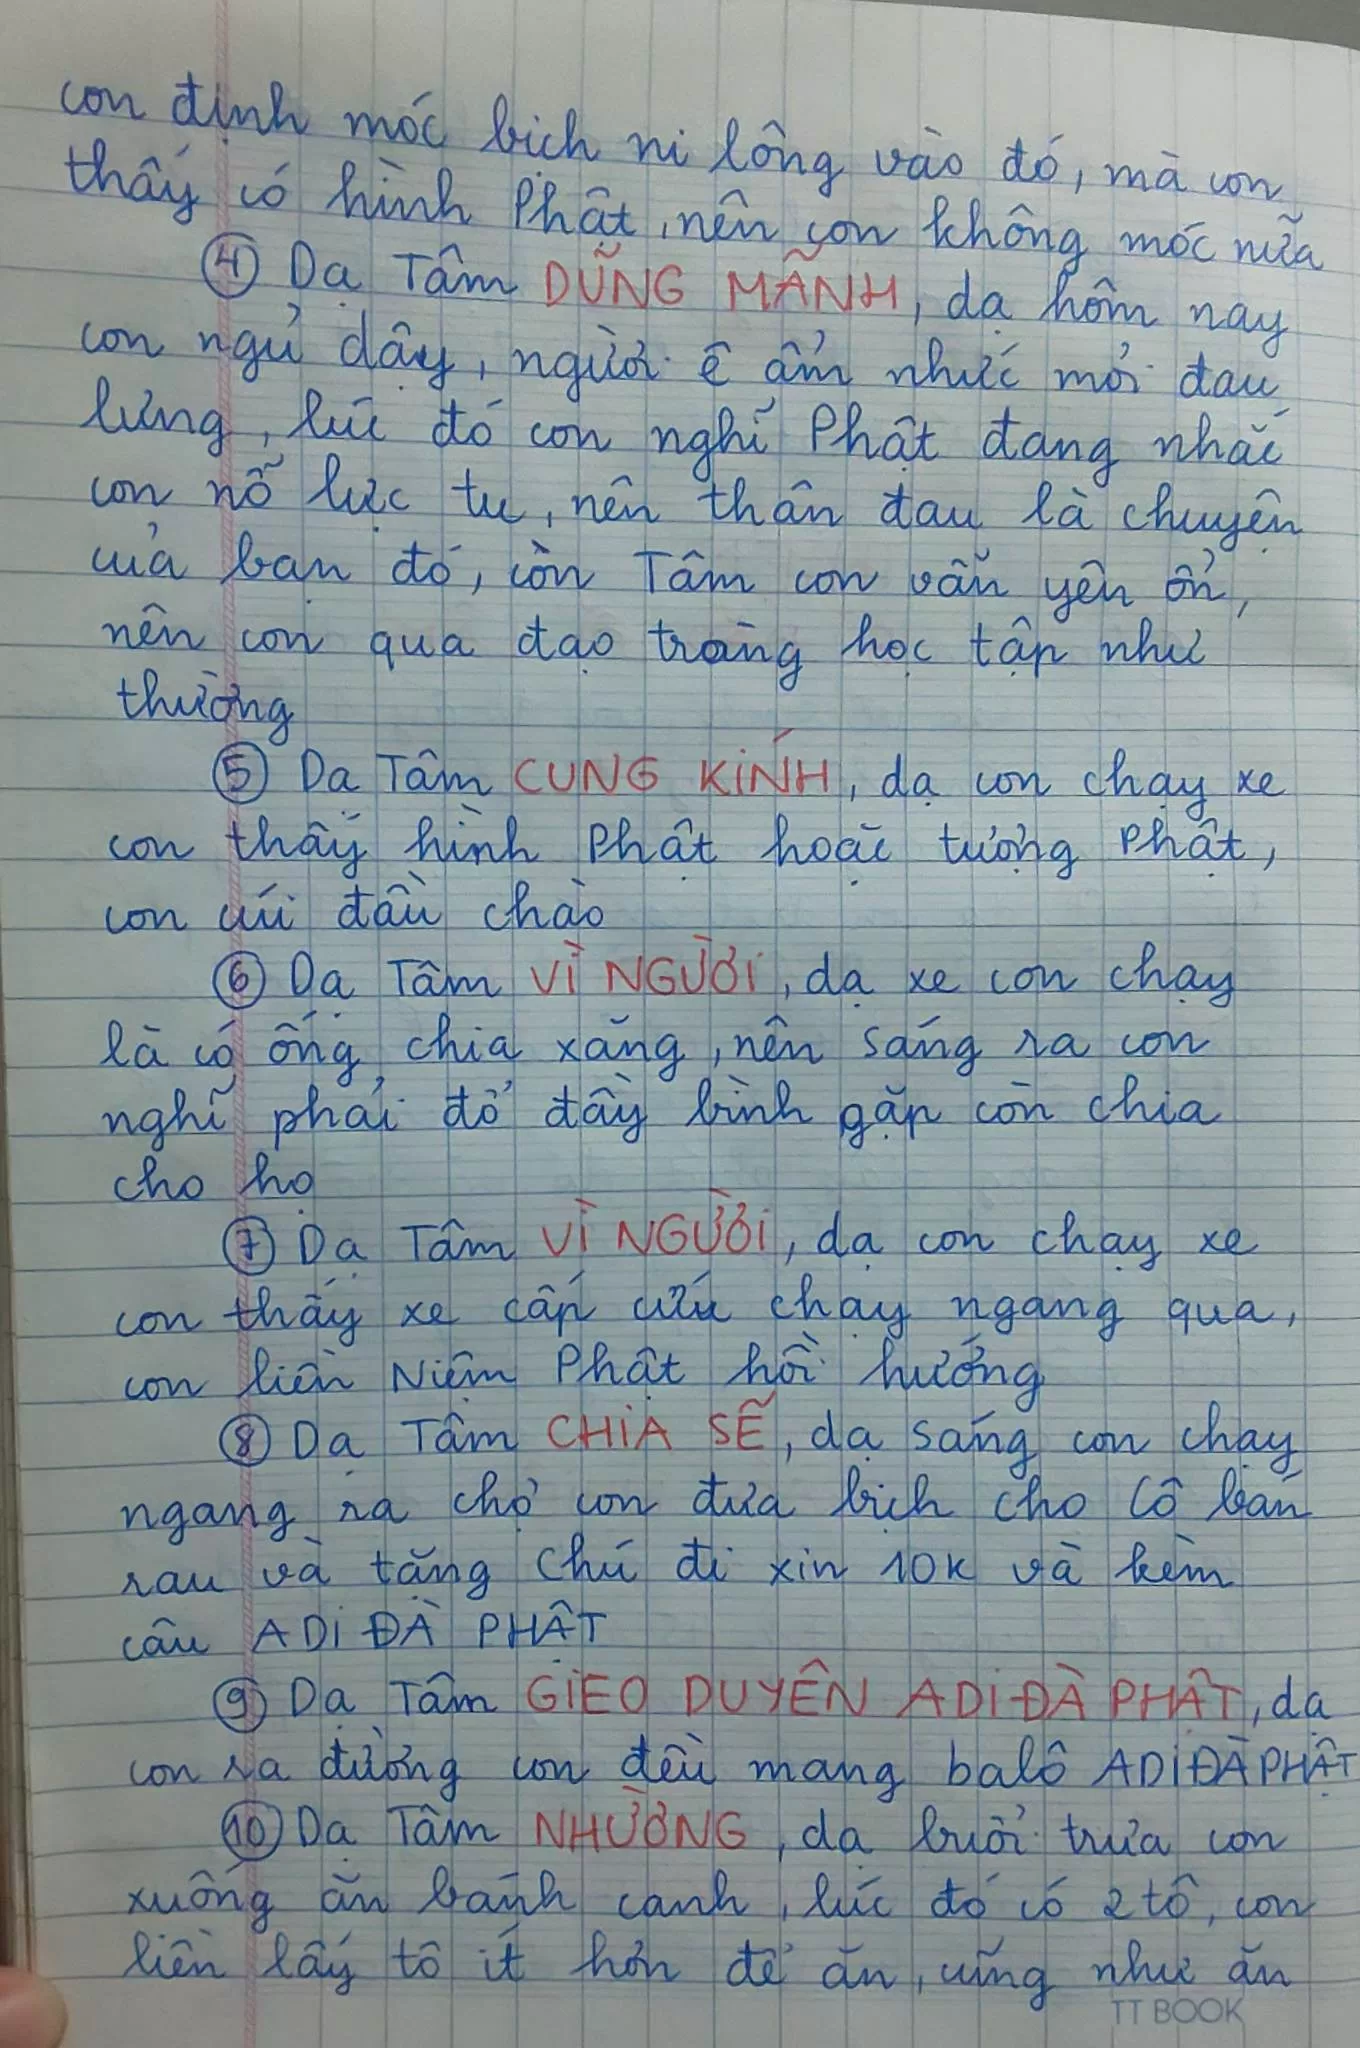 con định móc bịch ni lông vào đó, mà con
thấy có hình Phật, nên con không móc nữa
④ Dạ Tâm DŨNG MÃNH, dạ hôm nay
con ngủ dậy, người ê ẩm nhức mỏi đau
lưng, lúc đó con nghĩ Phật đang nhắc
con nỗ lực tu, nên thân đau là chuyện
của bạn đó, còn Tâm con vẫn yên ổn,
nên con qua đạo tràng học tập như
thường
⑤ Dạ Tâm CUNG KÍNH, dạ con chạy xe
con thấy hình Phật hoặc tượng Phật,
con cúi đầu chào
⑥ Dạ Tâm VÌ NGƯỜI, dạ xe con chạy
là có ống chia xăng, nên sáng ra con
nghĩ phải đổ đầy bình gặp còn chia
cho họ
⑦ Dạ Tâm VÌ NGƯỜI, dạ con chạy xe
con thấy xe cấp cứu chạy ngang qua,
con liền Niệm Phật hồi hướng
⑧ Dạ Tâm CHIA SẼ, dạ sáng con chạy
ngang ra chợ con đưa bịch cho Cô bán
rau và tặng chú đi xin 10K và kèm
câu A DI ĐÀ PHẬT
⑨ Dạ Tâm GIEO DUYÊN A DI ĐÀ PHẬT, dạ
con ra đường con đều mang balô A DI ĐÀ PHẬT
⑩ Dạ Tâm NHƯỜNG, dạ buổi trưa con
xuống ăn bánh canh, lúc đó có 2 tô, con
liền lấy tô ít hơn để ăn, cũng như ăn
TT BOOK